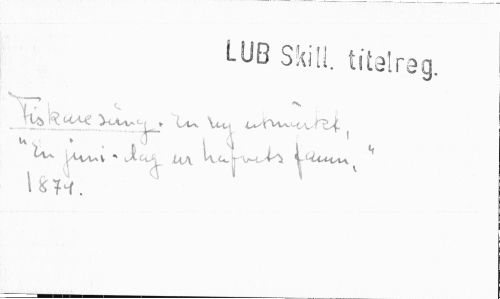 LUB Skill. titelreg.
Fiskaresång. En ny utmärkt,
"En juni-dag ur hafvets famn,"
1874.